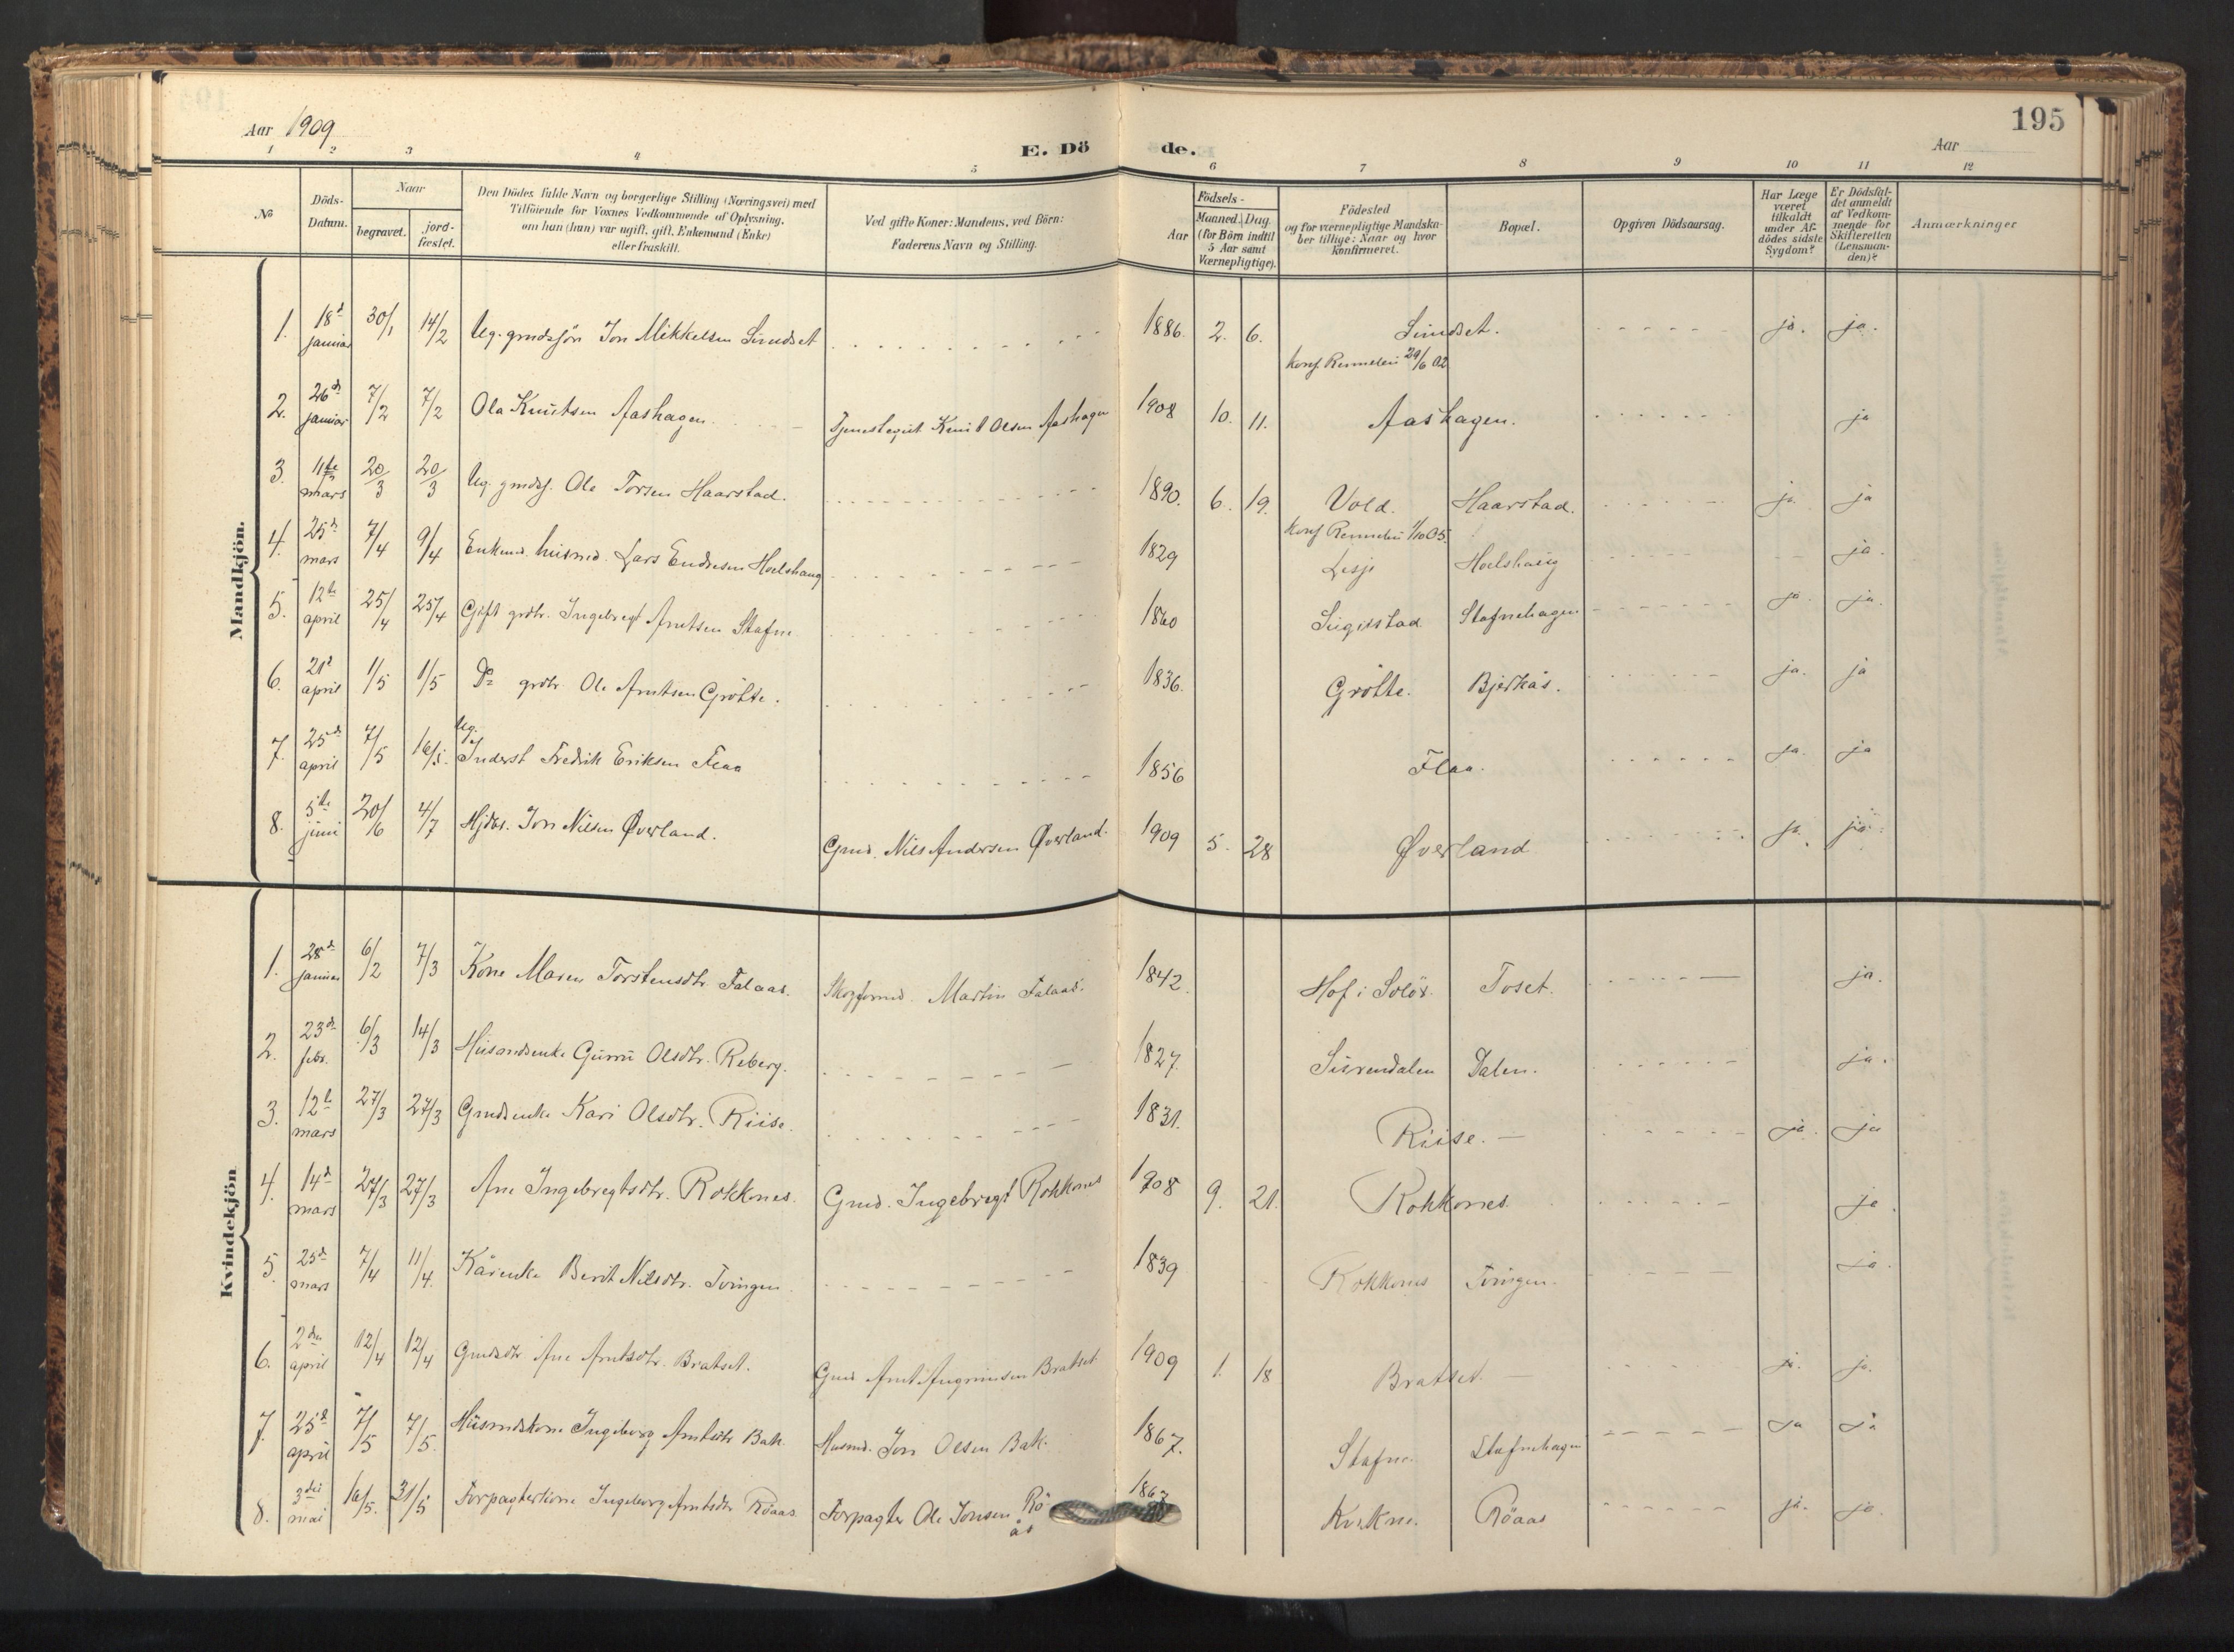 195
Aar 1909
E. Dö de.
Aar
1 2 3 4 5 6 7 8 9 10 11 12
No
Döds-
Datum.
Naar
begravet.
jord-
fæstet.
Den Dödes fulde Navn og borgerlige Stilling (Næringsvei) med
Tilföiende for Voxnes Vedkommende af Oplysning,
om han (hun) var ugift, gift, Enkemand (Enke)
eller fraskilt.
Ved gifte Koner: Mandens, ved Börn:
Faderens Navn og Stilling.
Födsels-
Aar
Maaned. Dag
(for Börn indtil
5 Aar samt
Værnepligtige).
Födested
og for værnepligtige Mandska-
ber tillige: Naar og hvor
konfirmeret.
Bopæl.
Opgiven Dödsaarsag.
Har Læge
været
tilkaldt
under Af-
dödes sidste
Sygdom?
Er Dödsfal-
det anmeldt
af Vedkom-
mende for
Skifteretten
(Lensman-
den)?
Anmærkninger
Mandkjön.
1. 18d januar 30/1 14/2 Ug. grudsøn Jon Mikkelsen 1886. 2. 6. ja. ja.
konf. Rennebu 29/6 02
2. 26d januar 7/2 7/2 Ola Knutsen Aashagen. Tjenestegut Knut Olsen Aashagen 1908 10. 11. Aashagen. ja
3. 11te mars 20/3 20/3 Ug. gmdss. Ole Torsen Haarstad. 1890. 6. 19. Vold. Haarstad. ja. ja
konf Rennebu 1/10 05.
4. 25d mars 7/4 9/4 Enkem. husmd. Lars Endresen Hoelshaug 1829 Lesje Hoelshaug ja.
5. 12te april 25/4 25/4 Gift grdbr. Ingebregt Arntsen Stafne 1860 Stafnehagen ja. ja.
6. 21d april 1/5 1/5 Do grdbr. Ole Arntsen Grötte. 1836. Grötte. Bjerkås. ja. ja
7. 25d april 7/5 16/5. Ug. Inderst Fredrik Eriksen Flaa 1856 Flaa. ja. ja
8. 5te juni 20/6 4/7 Hjdbs. Jon Nilsen Øverland. Gmd. Nils Andersen Øverland. 1909 5. 28 Øverland ja. ja.
Kvindekjön
1. 28d januar 6/2 7/3 Kone Maren Torstensdtr. Falaas. Skogformd. Martin Falaas. 1842. Hof i Solör. Toset. ja.
2. 23d febr. 6/3 14/3 Husmdsenke Gunnu Olsdtr. Reberg. 1827. Surendalen Dalen. ja.
3. 12te mars 27/3 27/3 Gmdsenke Kari Olsdtr. Riise. 1831. Riise. ja. ja
4. 14d mars 27/3 27/3 Ane Ingebregtsdtr. Rokkones. Gmd. Ingebregt Rokkones 1908 9. 21. Rokkones. ja.
5. 25d mars 7/4 11/4. Kårenke Berit Nilsdtr. Tvingen. 1839 Rokkones Tvingen. ja.
6. 2den april 12/4 12/4 Gmdsdtr Ane Arntsdtr. Bratset. Gmd Arnt Bratset. 1909 1. 18 Bratset. ja. ja.
7. 25d april 7/5 7/5. Husmdskone Ingeborg Arntsdtr Bak. Husmd. Jon Olsen Bak. 1867. Stafne. Stafnehagen ja ja
8. 3die mai 16/5. 31/5 Forpagterkone Ingeborg Arntsdtr Röaas. Forpagter Ole Jonsen Rö
ås
1867 Kvikne. Röaas ja. ja.